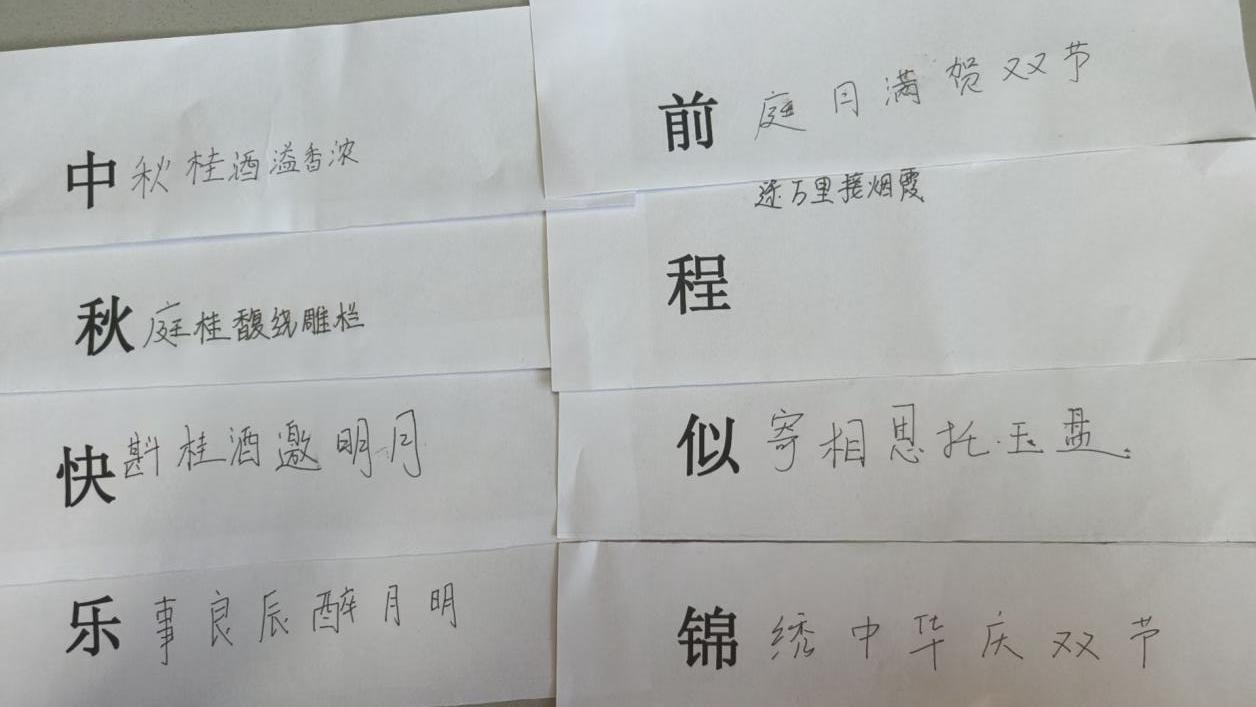 中秋桂酒溢香浓
秋庭桂馥绕雕栏
快斟桂酒邀明月
乐事良辰醉月明
前庭月满贺双节
程途万里接烟霞
似寄相思托玉盘.
锦绣中华庆双节